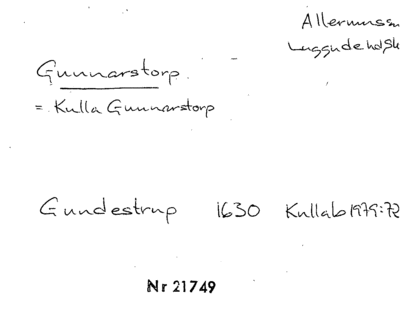 Allerums sn
Luggude hd Sk
Gunnarstorp.
= Kulla Gunnarstorp
Gundestrup 1630 Kullab 1979:72
Nr 21749